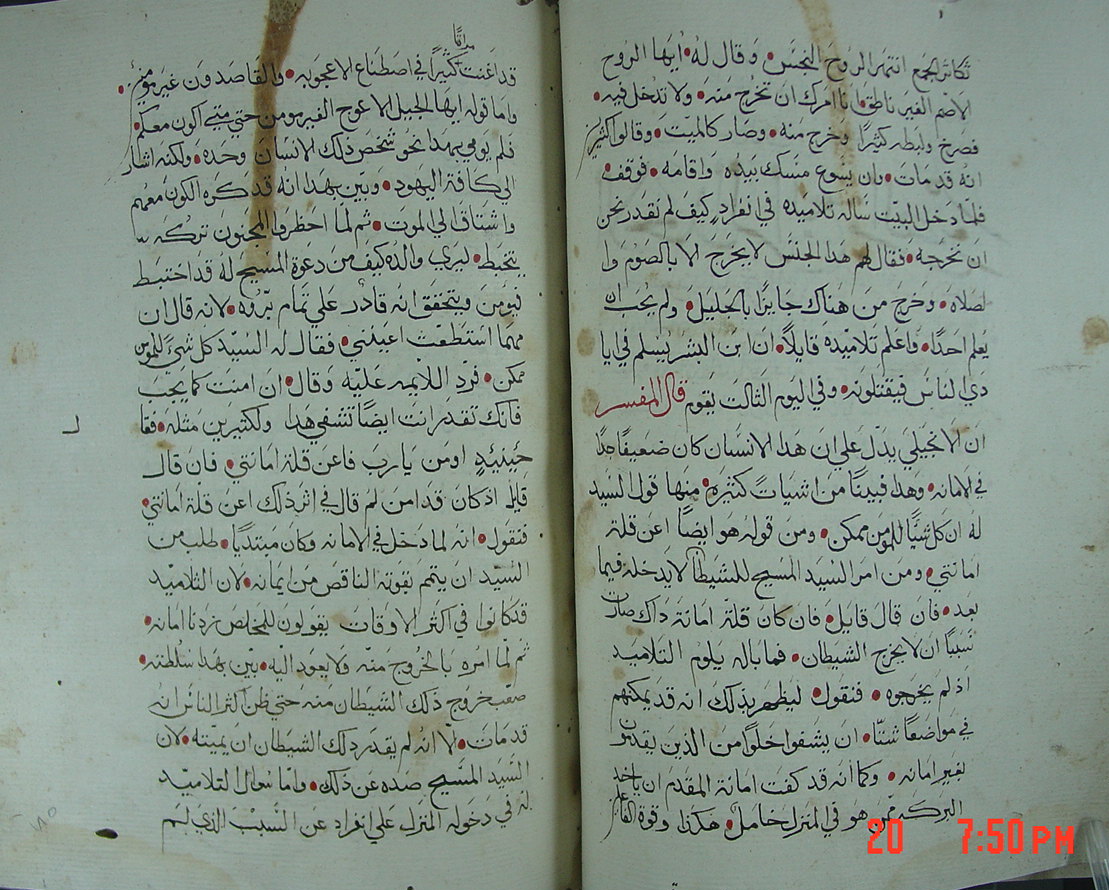 تكاثر الجمع انتهر الروح النجس • وقال له • ايها الروح
الاصم الغير ناطق • انا امرك ان تخرج منه • ولا تدخل فيه •
فصرخ ولبطه كثيرًا وخرج منه • وصار كالميت • وقالوا كثيرين
انه قد مات • وان يسوع مسك بيده واقامه • فوقف •
فلما دخل البيت ساله تلاميذه في انفرادٍ كيف لم نقدر نحن
ان نخرجه • فقال لهم هذا الجنس لا يخرج الا بالصوم وا
لصلاه • وخرج من هناك جايزًا بالجليل • ولم يحب ان
يعلم احدًا • واعلم تلاميذه قايلًا • ان ابن البشر يسلم في ايا
دي الناس فيقتلونه • وفي اليوم الثالث يقوم قال المفسر
ان الانجيلي يدل علي ان هذا الانسان كان ضعيفًا جدًا
في الامانه • وهذا فبينًا من اشيات كثيره • منها قول السيد
له ان كل شيًا للمومن ممكن • ومن قوله هو ايضًا اعن قلة
امانتي • ومن امر السيد المسيح للشيطان لا يدخله فيما
بعد • فان قال قايل • فان كان قلة امانة ذاك صارت
سببًا ان لا يخرج الشيطان • فما باله يلوم التلاميد
اذ لم يخرجوه • فنقول ليظهر بذلك انه قد يمكنهم
في مواضعًا شتا • ان يشفوا خلوًا من الذين يقدمون
لغير امانه • وكما انه قد كفت امانة المقدم ان ياخد
البركه ممن هو في المنزل خامل • هكذا وقوة الفاعل
مدافًا
قد اغنت كثيرًا في اصطناع الاعجوبه • والقاصدون غير مومنين •
واما قوله ايها الجيل الاعوج الغير مومن حتي متي اكون معكم •
فلم يومي بهذا نحو شخص ذلك الانسان وحده • ولكنه اشار
الي كافة اليهود • وبين بهذا انه قد كره الكون معهم
واشتاق الي الموت • ثم لما احظروا المجنون تركه
يتخبط • ليري والده كيف من دعوة المسيح له قد اختبط
فيومن ويتحقق انه قادر علي تمام بروه • لانه قال ان
مهما استطعت اعينني • فقال له السيد كل شيءً للمومن
ممكن • فرد اللايمه عليه وقال • ان امنت كما يجب
فانك تقدر انت ايضًا تشفي هذا ولكثيرين مثله • فقا
حينيدٍ اومن يارب فاعن قلة امانتي • فان قال
قايل اذ كان قد امن لم قال في اثر ذلك اعن قلة امانتي •
فنقول • انه لما دخل في الامانه وكان مبتديًا • طلب من
السيد ان يتمم بقوته الناقص من ايمانه • لان التلاميد
قد كانوا في اكثر الاوقات يقولون للمخلص زدنا امانه •
ثم لما امره بالخروج منه ولا يعود اليه • بين بهذا سلطته •
صعب خروج ذلك الشيطان منه حتي ظن اكثر الناس انه
قد مات • الا انه لم يقدر ذلك الشيطان ان يميته • لان
السيد المسيح صده عن ذلك • واما سوال التلاميد
له في دخوله المنزل علي انفراد عن السبب الذي لم
20 7:50 PM